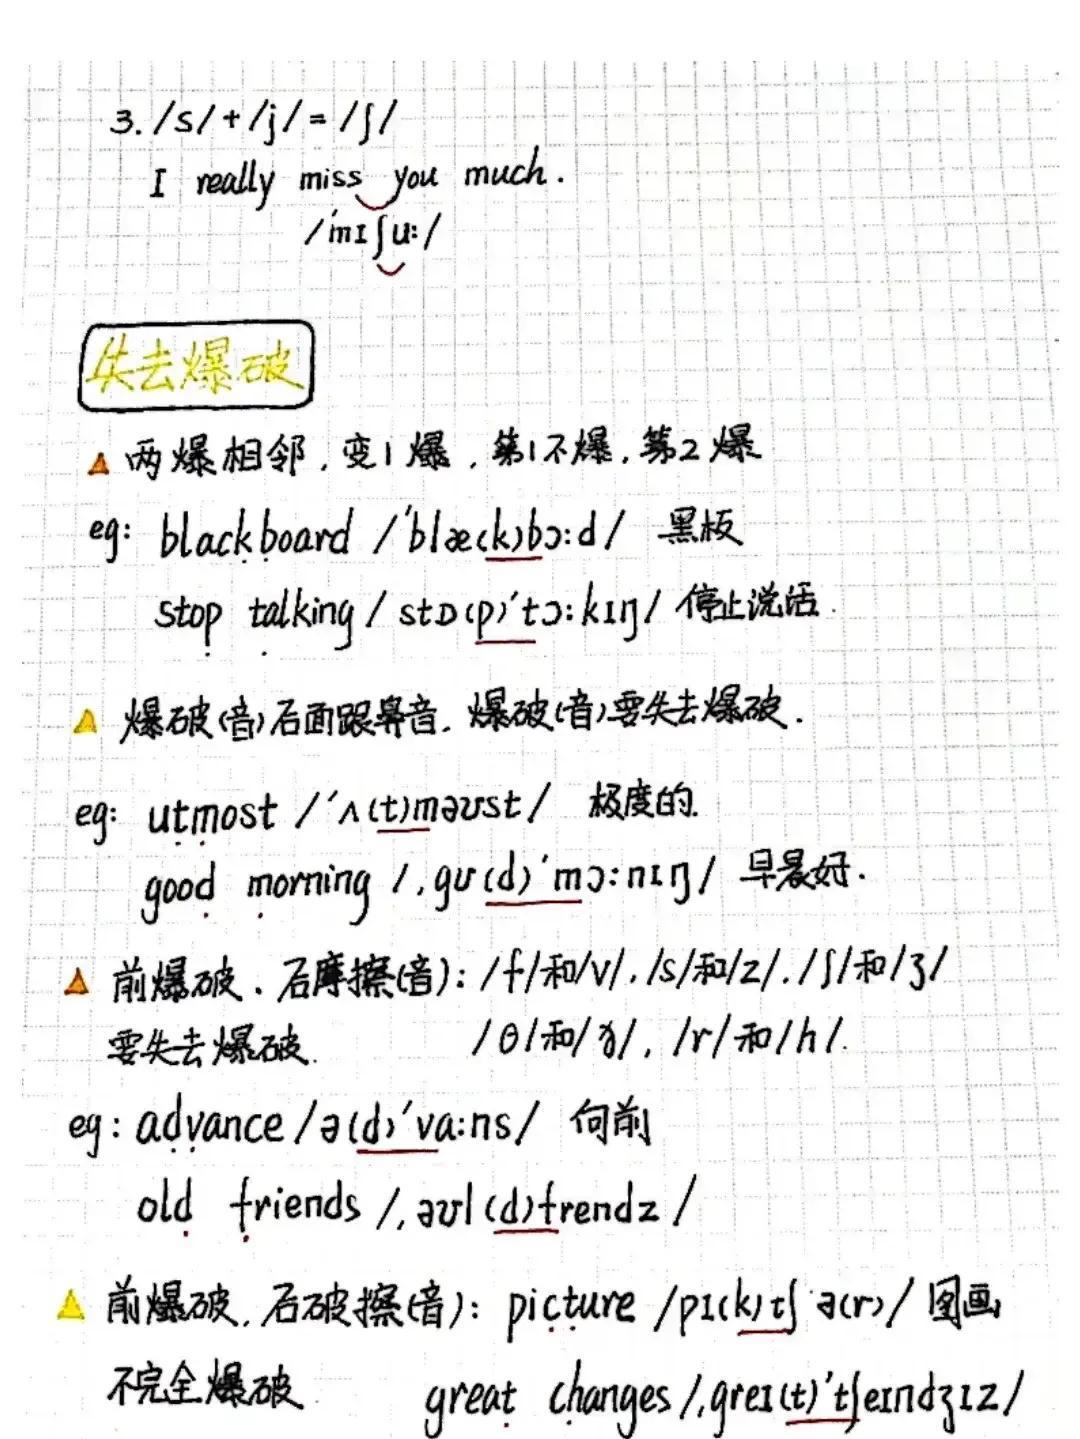 3. /s/+/j/=/ʃ/
I really miss you much.
/'mɪʃu:/
失去爆破
两爆相邻,变1爆,第1不爆,第2爆
eg: blackboard /'blæ(k)bɔ:d/ 黑板
stop talking /stɒ(p)'tɔ:kɪŋ/ 停止说话.
爆破(音)后面跟鼻音,爆破(音)要失去爆破.
eg: utmost /'ʌ(t)məʊst/ 极度的.
good morning /,gʊ(d)'mɔ:nɪŋ/ 早晨好.
前爆破、后摩擦(音): /f/和/v/./s/和/z/./ʃ/和/ʒ/
要失去爆破. /θ/和/ð/, /r/和/h/.
eg: advance /ə(d)'va:ns/ 向前
old friends /,əʊl(d)frendz/
前爆破,后破擦(音): picture /pɪ(k)tʃə(r)/ 图画
不完全爆破 great changes /,greɪ(t)'tʃeɪndʒɪz/